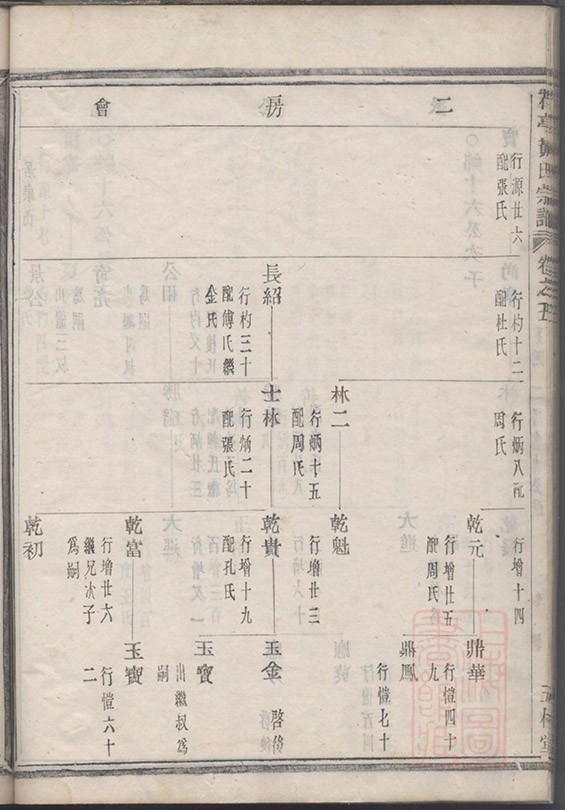 二房會
行源廿六
配張氏
行杓十二
配杜氏
行炳八配
周氏
行增十四
乾元
行增廿五
配周氏
鼎華
行愷四十
九
鼎鳳
行愷七十
林二
行炳十五
配周氏
乾魁
行增廿三
長紹
行杓三十
配傅氏繼
金氏
士林
行炳二十
配張氏
乾貴
行增十九
配孔氏
玉金
啓俊
玉寶
出繼叔爲
嗣
乾富
行增廿六
繼兄次子
爲嗣
玉寶
行愷六十
二
乾初
宗譜
卷之五